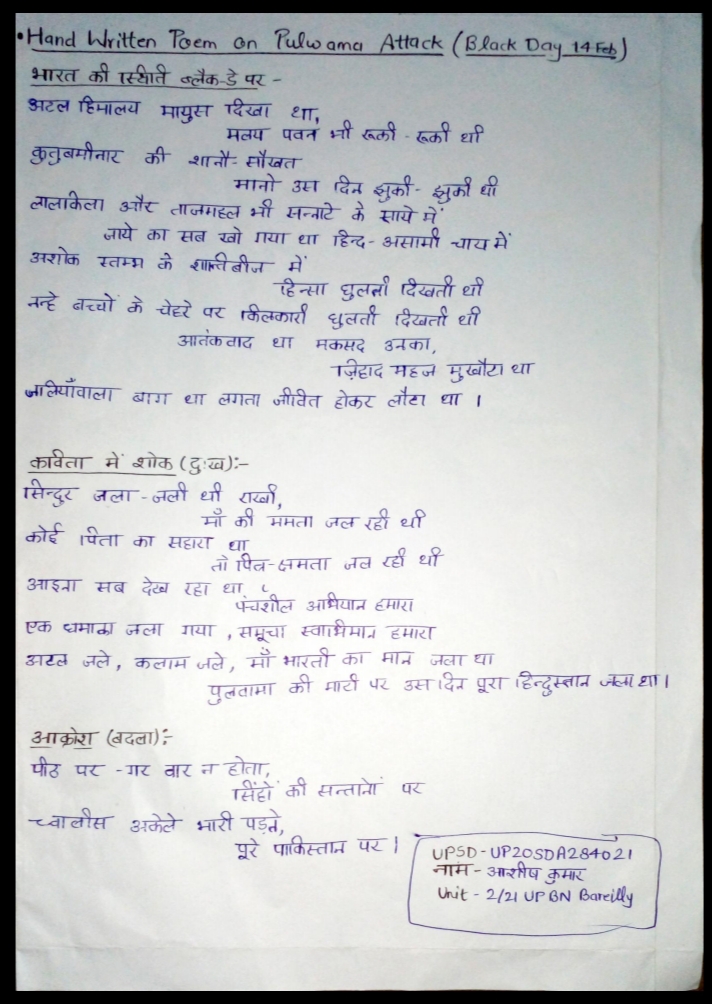 • Hand Written Poem on Pulwama Attack (Black Day 14 Feb)
भारत की स्थिति ब्लैक-डे पर -
अटल हिमालय मायुस दिखा था,
मलय पवन भी रूकी - रूकी थी
कुतुबमीनार की शानौ-सौखत
मानो उस दिन झुकी - झुकी थी
लालकिला और ताजमहल भी सन्नाटे के साये में
जाये का सब खो गया था हिन्द - असामी चाय में
अशोक स्तम्भ के शान्तिबीज में
हिन्सा घुलती दिखती थी
नन्हे बच्चों के चेहरे पर किलकारी धुलती दिखती थी
आतंकवाद था मकसद उनका,
ज़िहाद महज मुखौटा था
जालियाँवाला बाग था लगता जीवित होकर लौटा था ।
कविता में शोक (दुःख):-
सिन्दुर जला - जली थी राखी,
माँ की ममता जल रही थी
कोई पिता का सहारा था
तो पितृ-क्षमता जल रही थी
आइना सब देख रहा था,
पंचशील अभियान हमारा
एक धमाका जला गया, समूचा स्वाभिमान हमारा
अटल जले, कलाम जले, माँ भारती का मान जला था
पुलवामा की माटी पर उस दिन पूरा हिन्दुस्तान जला था।
आक्रोश (बदला):-
पीठ पर -गर वार न होता,
सिंहों की सन्तानों पर
च्वालीस अकेले भारी पड़ते,
पूरे पाकिस्तान पर।
UPSD - UP20SDA284021
नाम - आशीष कुमार
Unit - 2/21 UP BN Bareilly